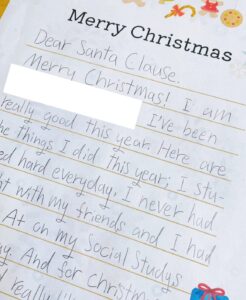 Merry Christmas
Dear Santa Clause,
Merry Christmas! I am
I've been
really good this year. Here are
the things I did this year; I stu-
ed hard everyday, I never had
ht with my friends and I had
At on my Social Studys
And for christm
d really li